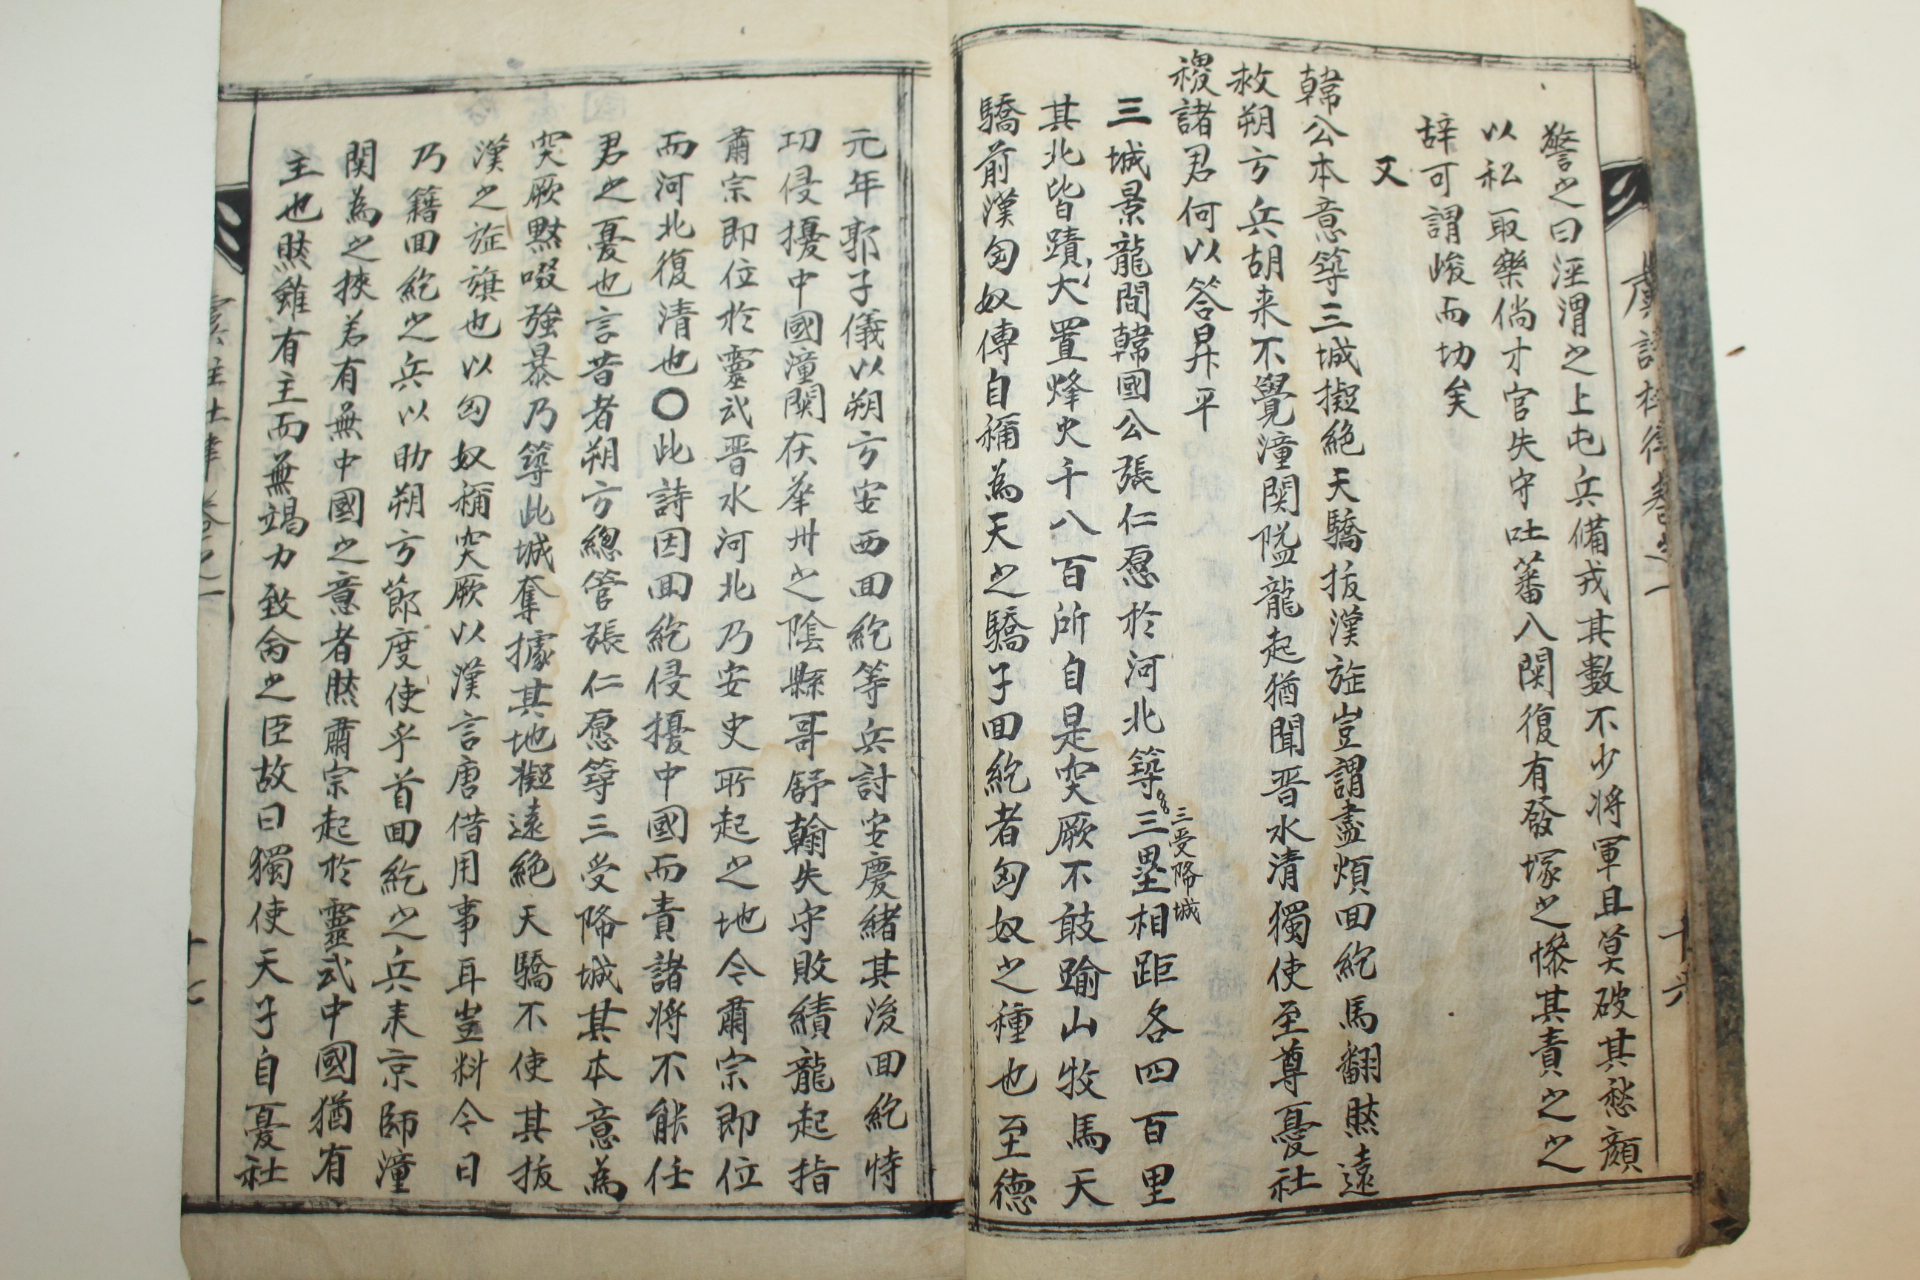 警之曰涇渭之上屯兵備戎其數不少将軍且莫破其愁顔
以私取樂倘才官失守吐蕃八関復有發塚之惨其責之之
辞可謂峻而切矣
又
韓公本意築三城擬絶天驕拔漢旌豈謂盡煩回紇馬翻然遠
救朔方兵胡来不覺潼関隘龍起猶聞晋水清獨使至尊憂社
稷諸君何以答昇平
三城景龍間韓國公張仁愿於河北築三壘相距各四百里
三受降城
其北皆蹟大置烽火千八百所自是突厥不敢踰山牧馬天
驕前漢匈奴傳自稱為天之驕子回紇者匈奴之種也至德
元年郭子儀以朔方安西回紇等兵討安慶緒其後回紇恃
功侵擾中國潼関在華州之陰縣哥舒翰失守敗績龍起指
肅宗即位於靈武晋水河北乃安史所起之地今肅宗即位
而河北復清也〇此詩因回紇侵擾中國而責諸将不能任
君之憂也言昔者朔方緫管張仁愿築三受降城其本意為
突厥黙啜強暴乃築此城奪據其地擬遠絶天驕不使其拔
漢之旌旗也以匈奴稱突厥以漢言唐借用事耳豈料今日
乃籍回紇之兵以助朔方節度使乎首回紇之兵来京師潼
関為之狹若有無中國之意者然肅宗起於靈武中國猶有
主也然雖有主而無竭力致命之臣故曰獨使天子自憂社
虞註杜律卷之一
十七
虞註杜律卷之一
十六